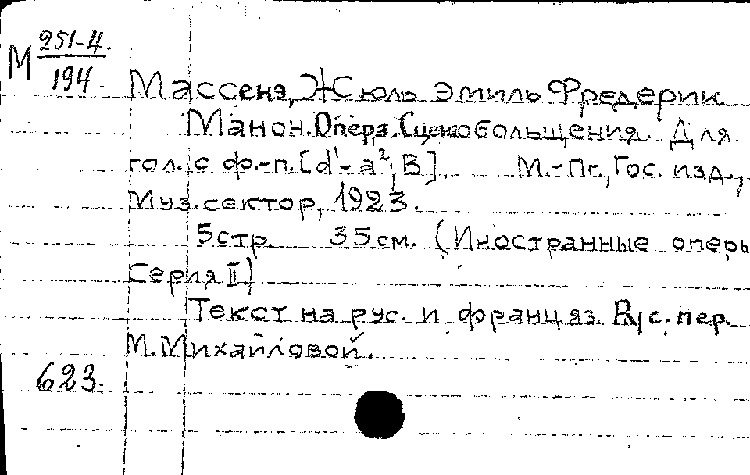 М 251-4.
194
Массенэ, Жюль Эмиль Фредерик
Манон. Опера. Сцена обольщения. Для
гол. с ф.-п. [d¹-a², B]. М.-Пг., Гос. изд.,
Муз. сектор, 1923.
5 стр. 35 см. (Иностранные оперы
Серия II)
Текст на рус. и франц яз. Рус. пер.
М. Михайловой.
623.